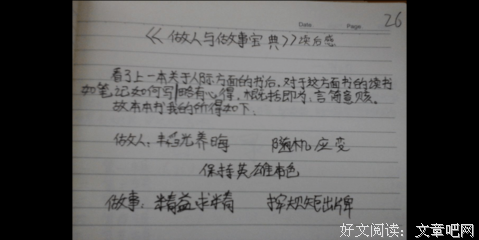 Date Page 26
《做人与做事宝典》读后感
看了上一本关于人际方面的书后，对于这方面书的读书
如笔记如何写略有心得，概括即为：言简意赅。
故本本书我的所得如下：
做人：韬光养晦 随机应变
保持英雄本色
做事：精益求精 按规矩出牌
好文阅读：文章吧网